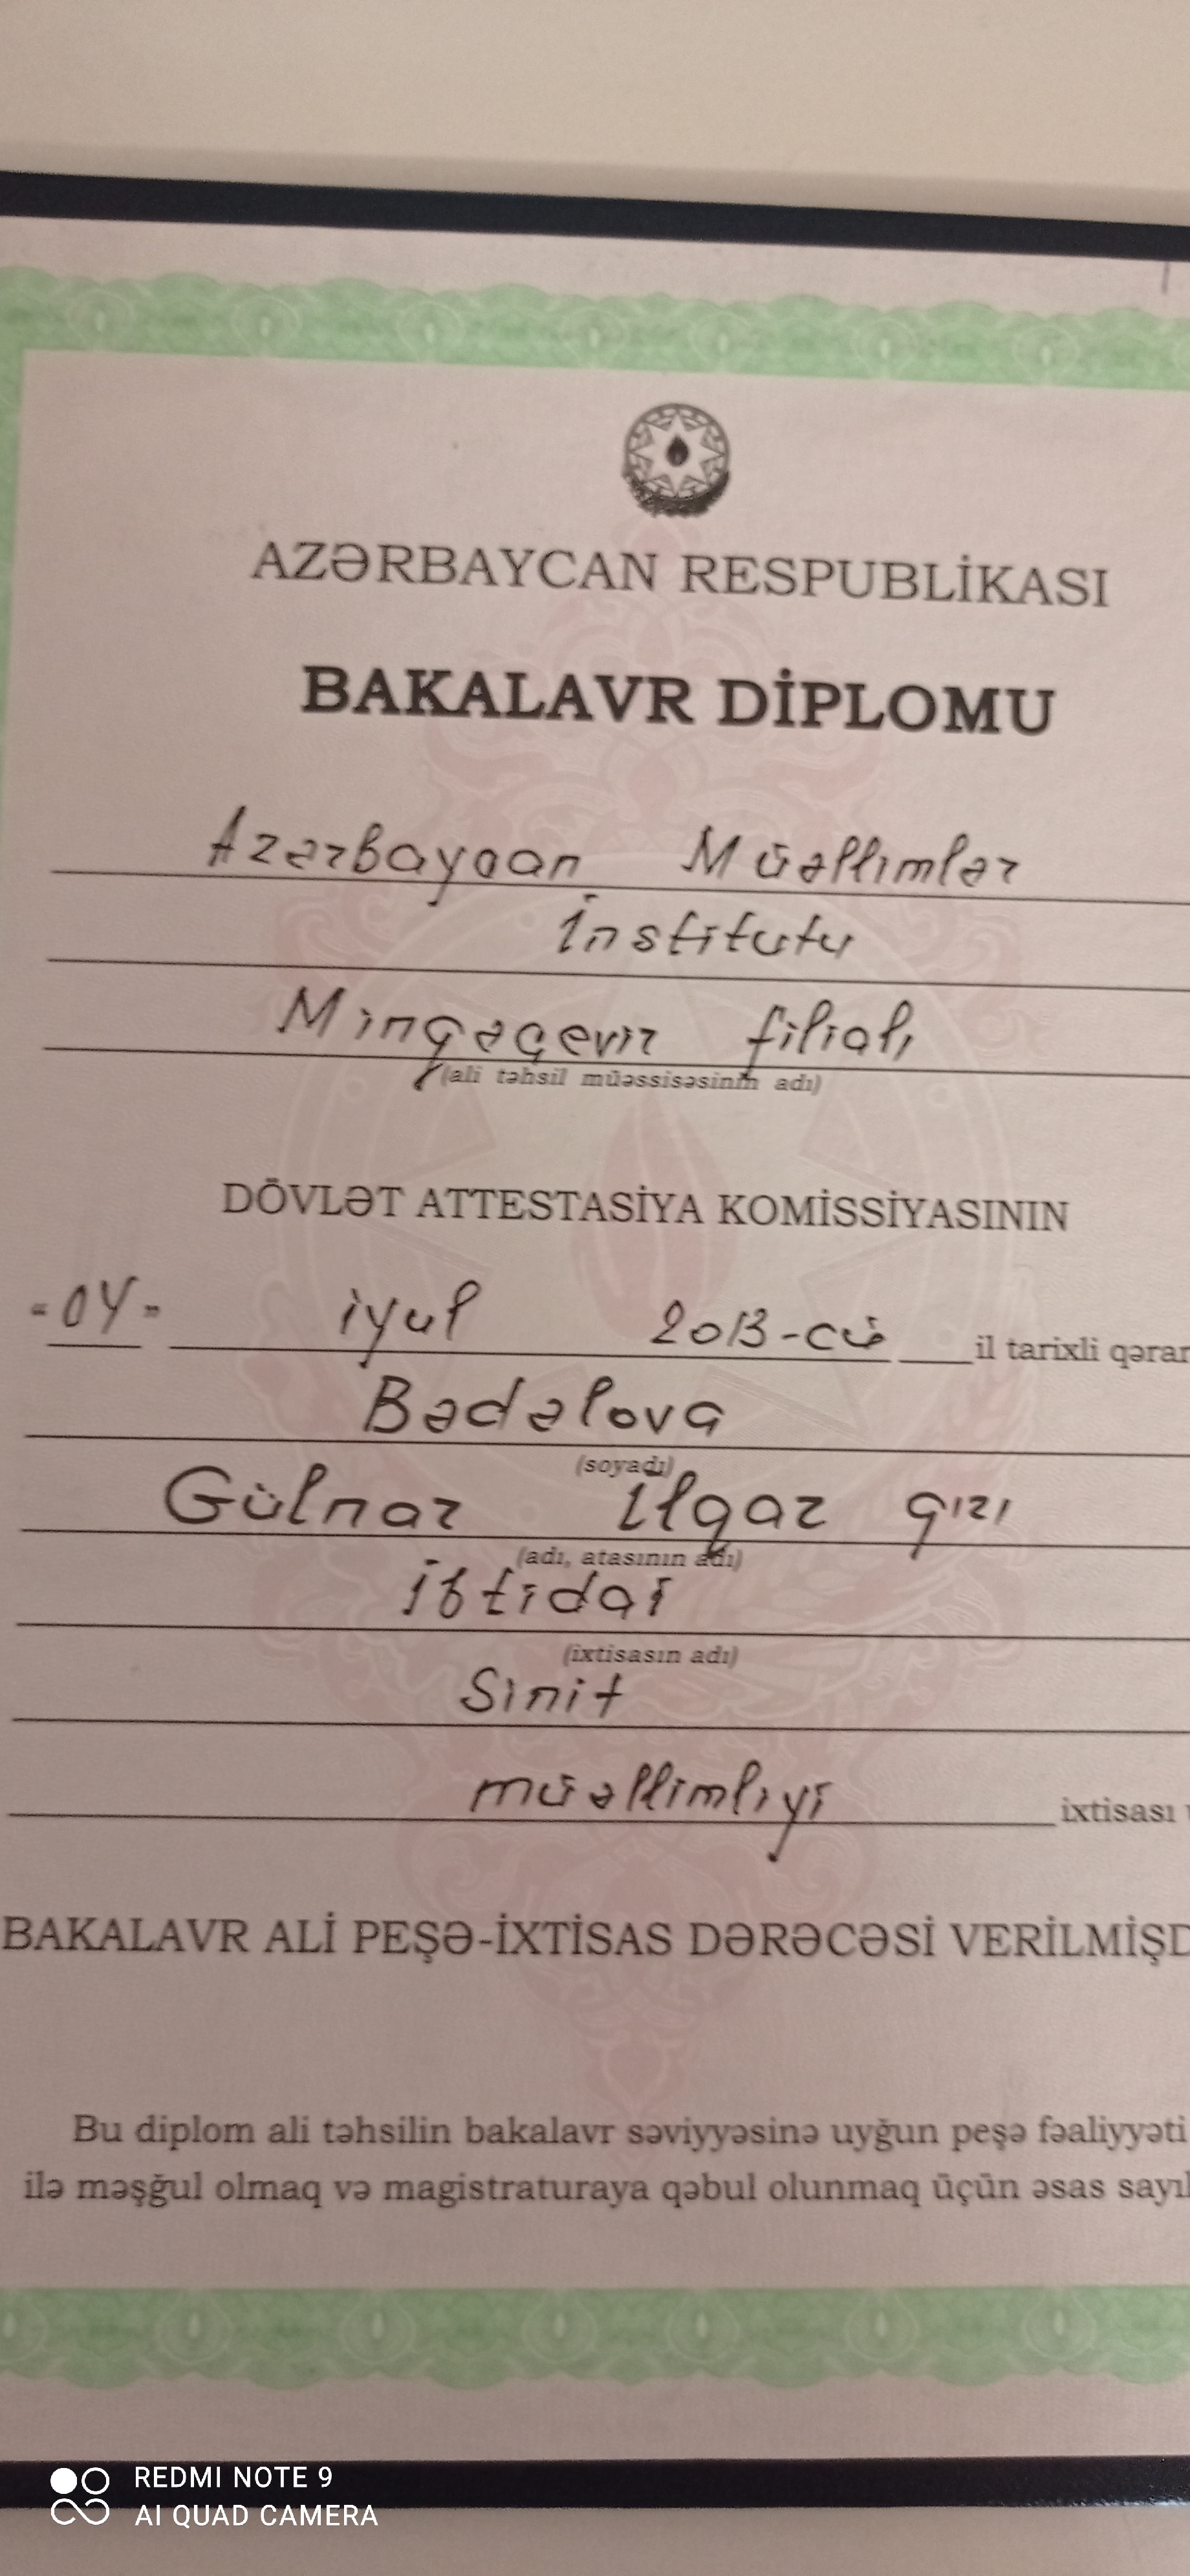 AZƏRBAYCAN RESPUBLİKASI
BAKALAVR DİPLOMU
Azərbaycan Müəllimlər
İnstitutu
Mingəçevir filialı
(ali təhsil müəssisəsinin adı)
DÖVLƏT ATTESTASİYA KOMİSSİYASININ
"04" iyul 2013-cü il tarixli qərar
Bədəlova
(soyadı)
Gülnar İlqar qızı
(adı, atasının adı)
İbtidai
(ixtisasın adı)
Sinif
müəllimliyi ixtisası
BAKALAVR ALİ PEŞƏ-İXTİSAS DƏRƏCƏSİ VERİLMİŞD
Bu diplom ali təhsilin bakalavr səviyyəsinə uyğun peşə fəaliyyəti
ilə məşğul olmaq və magistraturaya qəbul olunmaq üçün əsas sayıl
REDMI NOTE 9
AI QUAD CAMERA